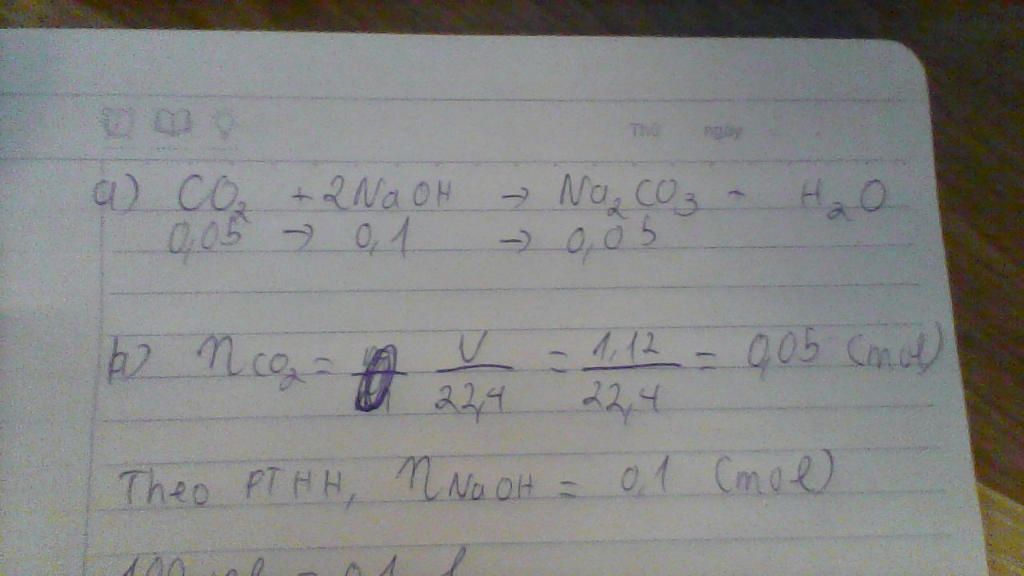 Thứ ngày
a) CO₂ + 2NaOH → Na₂CO₃ - H₂O
0,05 → 0,1 → 0,05
b) nCO₂ = V/22,4 = 1,12/22,4 = 0,05 (mol)
Theo PTHH, nNaOH = 0,1 (mol)